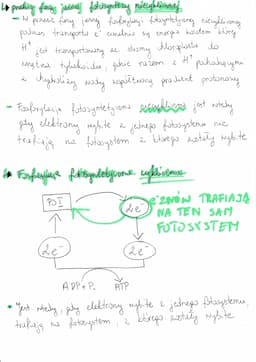 ↳ przebieg fazy jasnej fotosyntezy niecyklicznej
- W procesie fazy jasnej fosforylacji fotosyntetycznej niecyklicznej
podczas transportu e⁻ uwalnia się energia kosztem której
H⁺ jest transportowany ze stromy chloroplastu do
wnętrza tylakoidu, gdzie razem z H⁺ pochodzącymi
z fotolizy wody współtworzą gradient protonowy
- Fosforylacja fotosyntetyczna niecykliczna jest wtedy
gdy elektrony wybite z jednego fotosystemu nie
trafiają na fotosystem z którego zostały wybite
↳ Fosforylacja fotosyntetyczna cykliczna
PSI
2e⁻
e⁻ ZNÓW TRAFIAJĄ
NA TEN SAM
FOTOSYSTEM
2e⁻
2e⁻
ADP+Pᵢ ATP
• Jest wtedy, gdy elektrony wybite z jednego fotosystemu,
trafiają na fotosystem, z którego zostały wybite